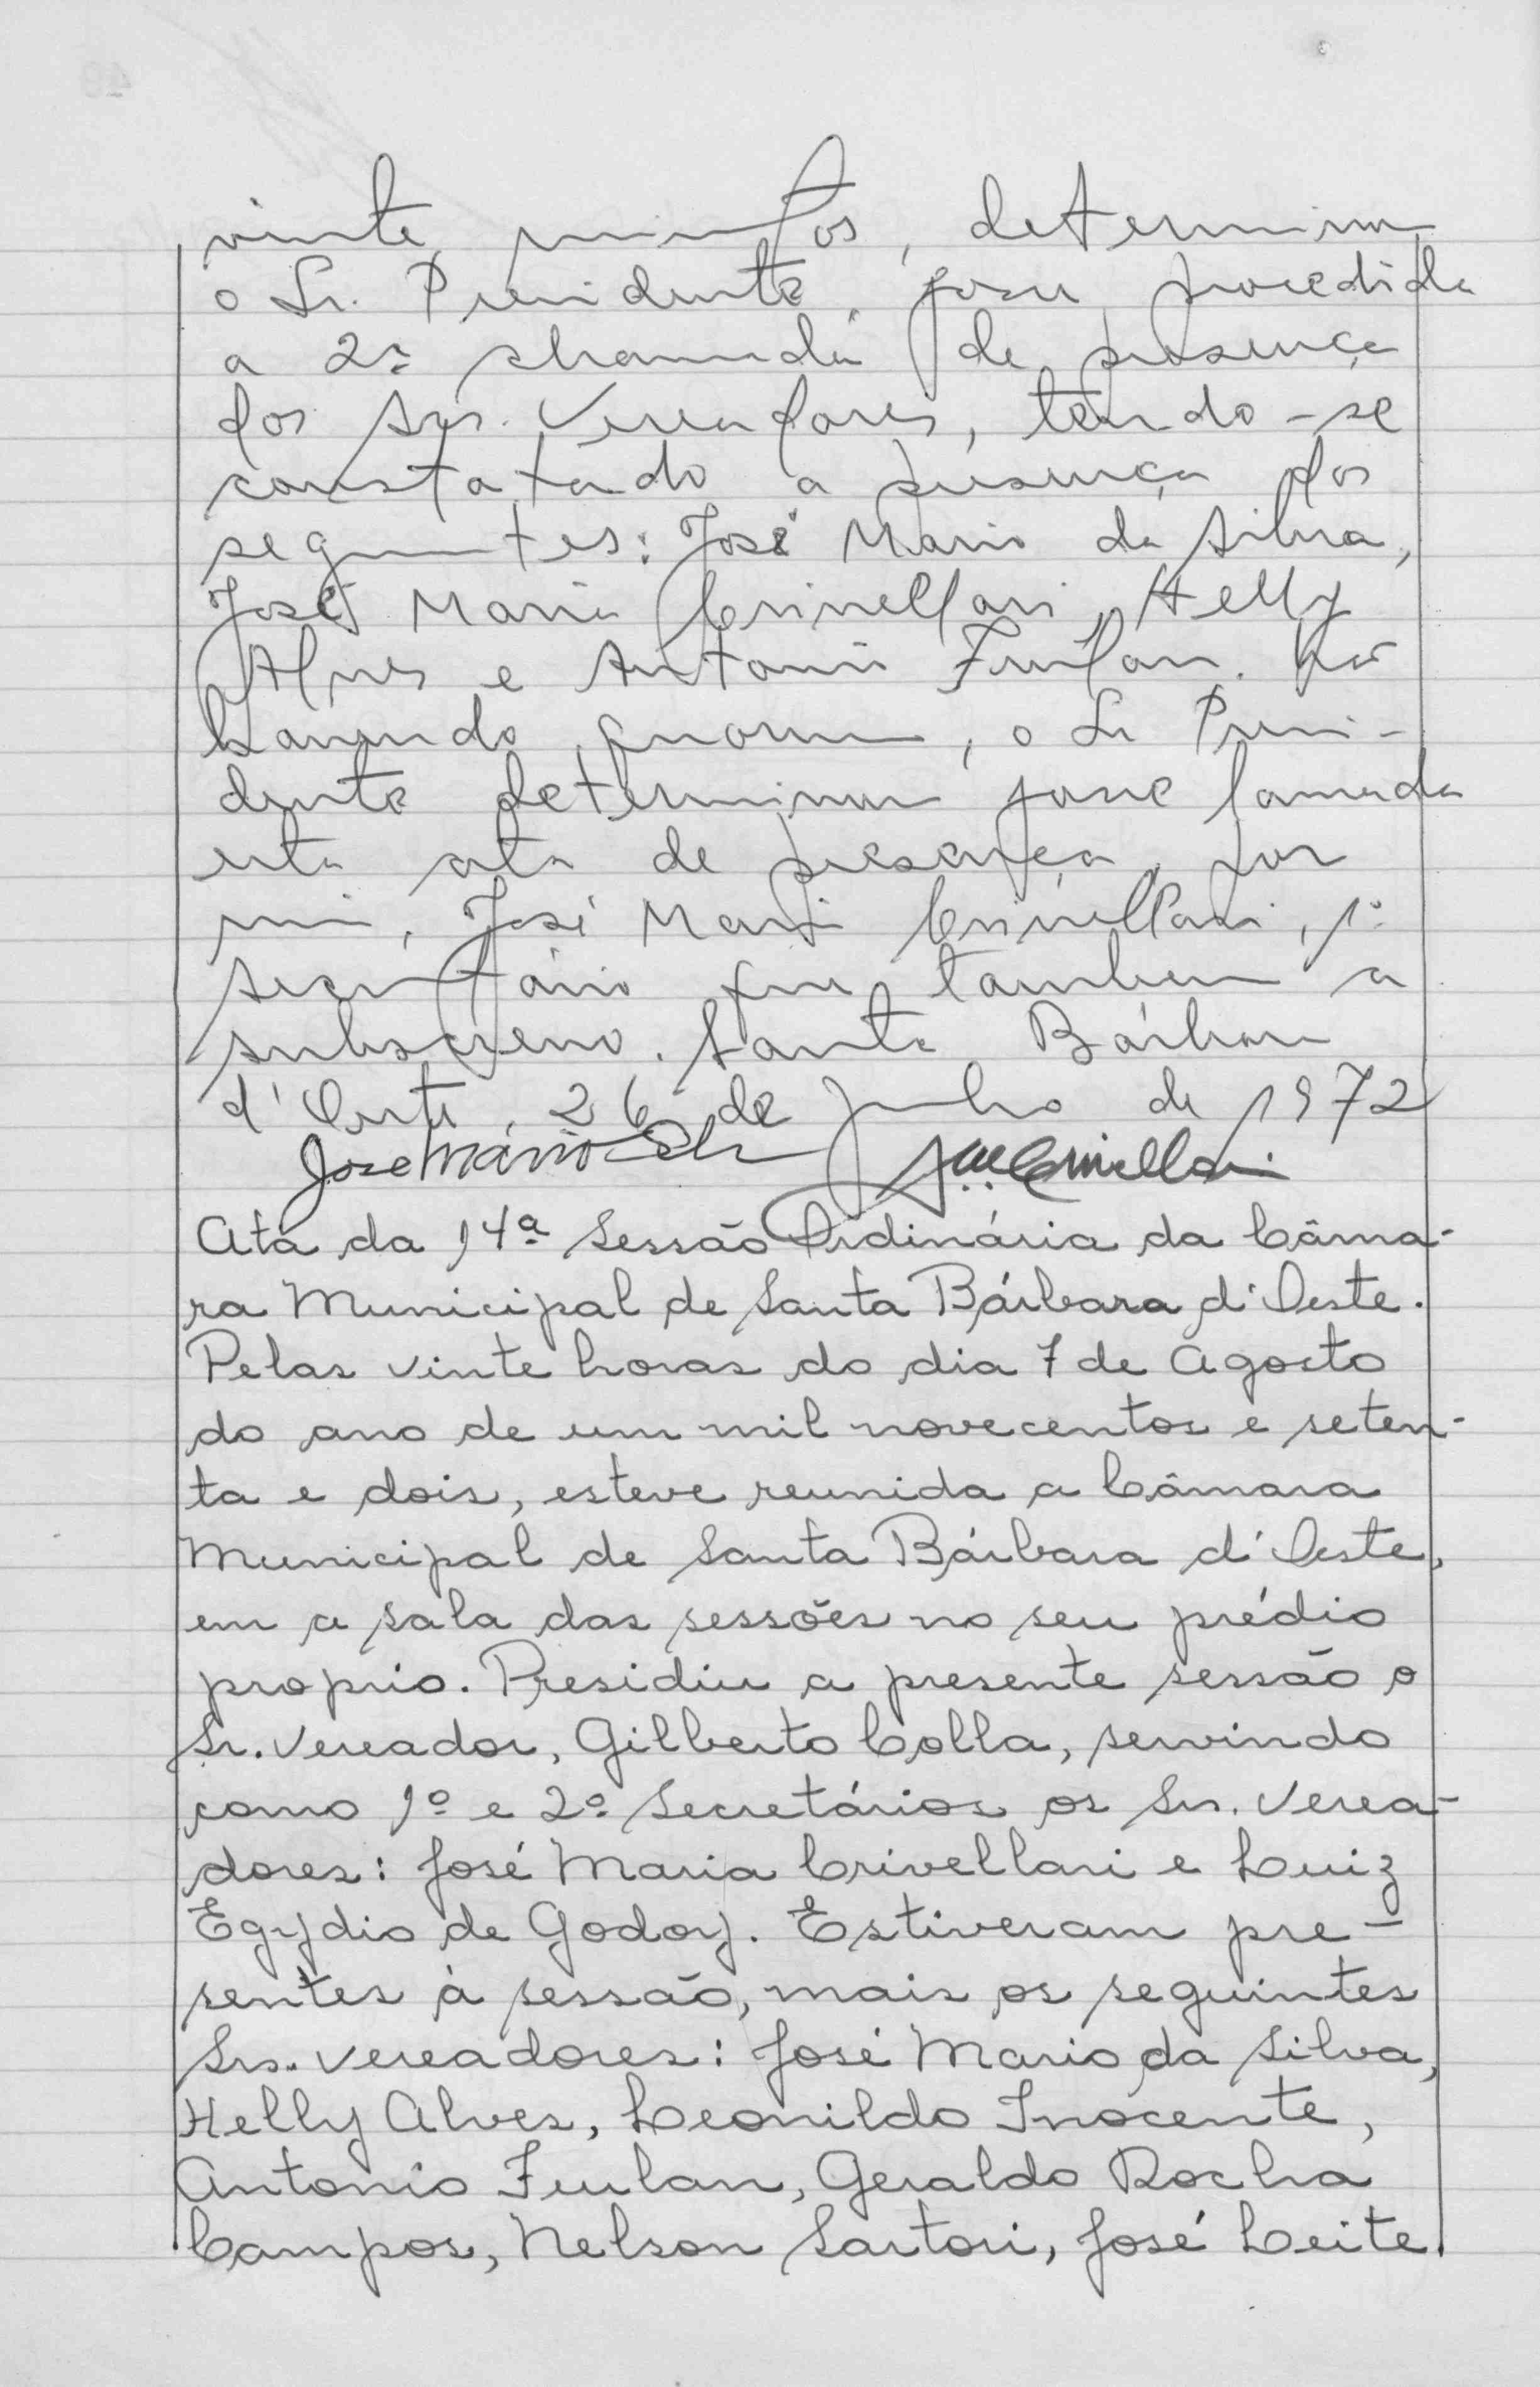 vinte minutos, determinou
o Sr. Presidente, fosse procedida
a 2ª chamada de presença
dos Srs. Vereadores, tendo-se
constatado a presença dos
seguintes: José Mario da Silva,
José Maria Crivellari, Helly
Alves e Antonio Furlan. Não
havendo quorum, o Sr Presi-
dente determinou fosse lavrada
esta ata de presença, por
mim, José Maria Crivellari, 1º
secretário que também a
subscrevo. Santa Bárbara
d'Oeste, 26 de Junho de 1972
José Mário Crivellari
Ata da 14ª Sessão Ordinária da Câma-
ra Municipal de Santa Bárbara d'Oeste.
Pelas vinte horas do dia 7 de Agosto
do ano de um mil novecentos e seten-
ta e dois, esteve reunida a Câmara
Municipal de Santa Bárbara d'Oeste,
em a sala das sessões no seu prédio
proprio. Presidiu a presente sessão o
Sr. Vereador, Gilberto Colla, servindo
como 1º e 2º Secretários os Srs. Verea-
dores: José Maria Crivellari e Luiz
Egydio de Godoy. Estiveram pre-
sentes à sessão, mais os seguintes
Srs. Vereadores: José Mario da Silva,
Helly Alves, Leonildo Inocente,
Antonio Furlan, Geraldo Rocha
Campos, Nelson Sartori, José Leite